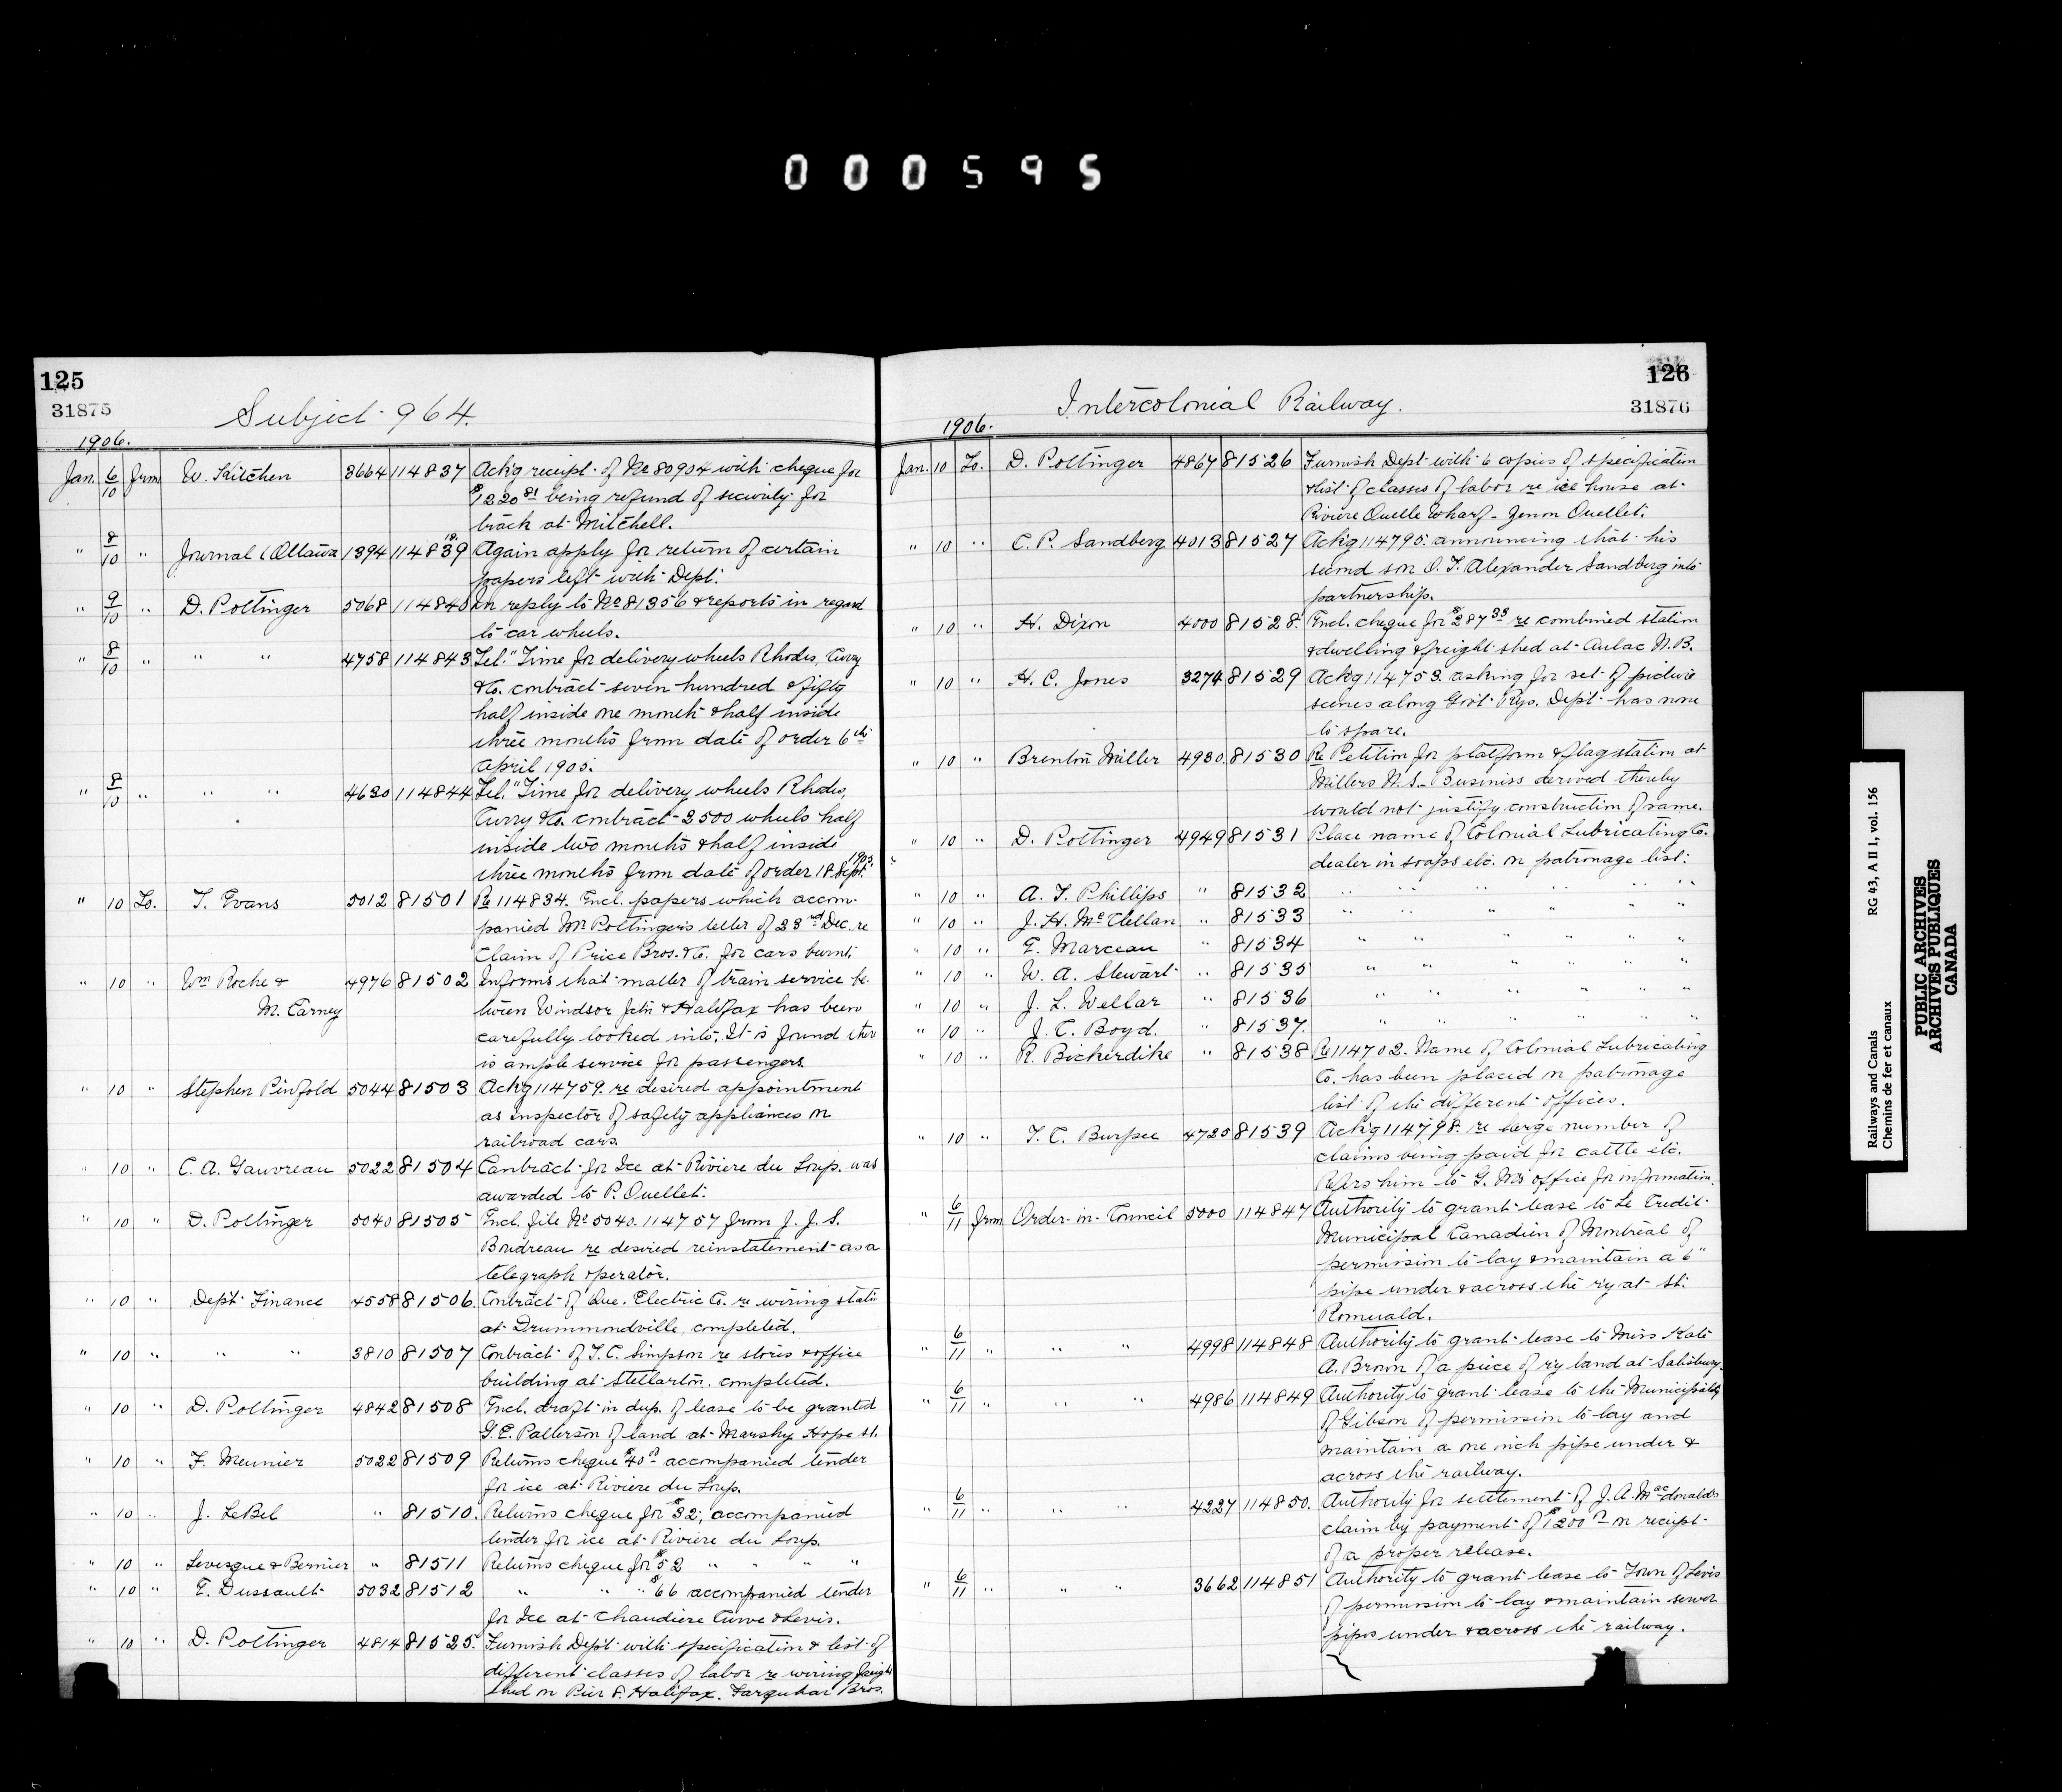 000595
125
31875
Subject 964.
1906.
Jan. 6/10 frm W. Kitchen 3664 114837 Ack'g receipt of No 80904 with cheque for
$1220 81 being refund of security for
track at Mitchell.
" 8/10 " Journal (Ottawa 1394 114839 Again apply for return of certain
papers left with Dept.
" 9/10 " D. Pottinger 5068 114840 In reply to No 81356 & reports in regard
to car wheels.
" 8/10 " " " 4758 114843 Tel. "Time for delivery wheels Rhodes, Curry
& Co. contract seven hundred & fifty
half inside one month & half inside
three months from date of order 6th
April 1905.
" 8/10 " " " 4630 114844 Tel. "Time for delivery wheels Rhodes,
Curry & Co. contract 2500 wheels half
inside two months & half inside
three months from date of order 18 Sept. 1905.
" 10 To. T. Evans 5012 81501 Re 114834. Encl. papers which accom-
panied Mr Pottinger's letter of 23rd Dec. re
Claim of Price Bros. & Co. for cars burnt.
" 10 " Wm Roche & 4976 81502 Informs that matter of train service be-
M. Carney tween Windsor Jctn & Halifax has been
carefully looked into. It is found ther
is ample service for passengers.
" 10 " Stephen Pinfold 5044 81503 Ack'g 114759. re desired appointment
as Inspector of safety appliances on
railroad cars.
" 10 " C. A. Gauvreau 5022 81504 Contract for Ice at Riviere du Loup. was
awarded to P. Ouellet.
" 10 " D. Pottinger 5040 81505 Encl. file No 5040. 114757 from J. J. S.
Boudreau re desired reinstatement as a
telegraph operator.
" 10 " Dept. Finance 4558 81506. Contract of Que. Electric Co. re wiring statn
at Drummondville, completed.
" 10 " " " 3810 81507 Contract of T. C. Simpson re stores & office
building at Stellarton. completed.
" 10 " D. Pottinger 4842 81508 Encl. draft in dup. of lease to be granted
G. E. Patterson of land at Marshy Hope st.
" 10 " F. Meunier 5022 81509 Returns cheque $40 accompanied tender
for ice at Riviere du Loup.
" 10 " J. LeBel " 81510. Returns cheque for $32, accompanied
tender for ice at Riviere du Loup.
" 10 " Levesque & Bernier " 81511 Returns cheque for $52 " " " "
" 10 " E. Dussault 5032 81512 " " " $66 accompanied tender
for Ice at Chaudiere Curve & Levis.
" 10 " D. Pottinger 4814 81525. Furnish Dept. with specification & list of
different classes of labor re wiring freight
shed on Pier 8. Halifax. Farquhar Bros.
126
31876
Intercolonial Railway.
1906.
Jan. 10 To. D. Pottinger 4867 81526 Furnish Dept with 6 copies of specification
& list of classes of labor re ice house at
Riviere Ouelle Wharf - Zenon Ouellet.
" 10 " C. P. Sandberg 4013 81527 Ack'g 114795. announcing that his
second son O. F. Alexander Sandberg into
partnership.
" 10 " H. Dixon 4000 81528. Encl. cheque for $287 33 re combined station
& dwelling & freight shed at Aulac N.B.
" 10 " H. C. Jones 3274 81529 Ack'g 114753. asking for set of picture
scenes along Govt Rys. Dept. has none
to spare.
" 10 " Brenton Miller 4930 81530 Re Petition for platform & flag station at
Millers N.S. - Business derived thereby
would not justify construction of same.
" 10 " D. Pottinger 4949 81531 Place name of Colonial Lubricating Co.
dealer in soaps etc. on patronage list.
" 10 " A. T. Phillips " 81532 " " " " " " "
" 10 " J. H. McClellan " 81533 " " " " " "
" 10 " E. Marceau " 81534 " " " " " "
" 10 " W. A. Stewart " 81535 " " " " " "
" 10 " J. L. Wellar " 81536 " " " " " "
" 10 " J. C. Boyd. " 81537. " " " " " "
" 10 " R. Bickerdike " 81538 Re 114702. Name of Colonial Lubricating
Co. has been placed on patronage
list of the different offices.
" 10 " T. C. Burpee 4725 81539 Ack'g 114798. re large number of
claims being paid for cattle etc.
Refers him to G. M's office for information.
" 6/11 frm Order-in-Council 5000 114847 Authority to grant lease to Le Credit
Municipal Canadien of Montreal of
permission to lay & maintain a 6"
pipe under & across the r'y at St.
Romuald.
" 6/11 " " " 4998 114848 Authority to grant lease to Miss Kate
A. Brown of a piece of r'y land at Salisbury.
" 6/11 " " " 4986 114849 Authority to grant lease to the Municipality
of Gibson of permission to lay and
maintain a one inch pipe under &
across the railway.
" 6/11 " " " 4227 114850. Authority for settlement of J. A. Macdonald's
claim by payment of $1200 on receipt
of a proper release.
" 6/11 " " " 3662 114851 Authority to grant lease to Town of Levis
of permission to lay & maintain sewer
pipes under & across the railway.
Railways and Canals RG 43, A II 1, vol. 156
Chemins de fer et canaux
PUBLIC ARCHIVES
ARCHIVES PUBLIQUES
CANADA